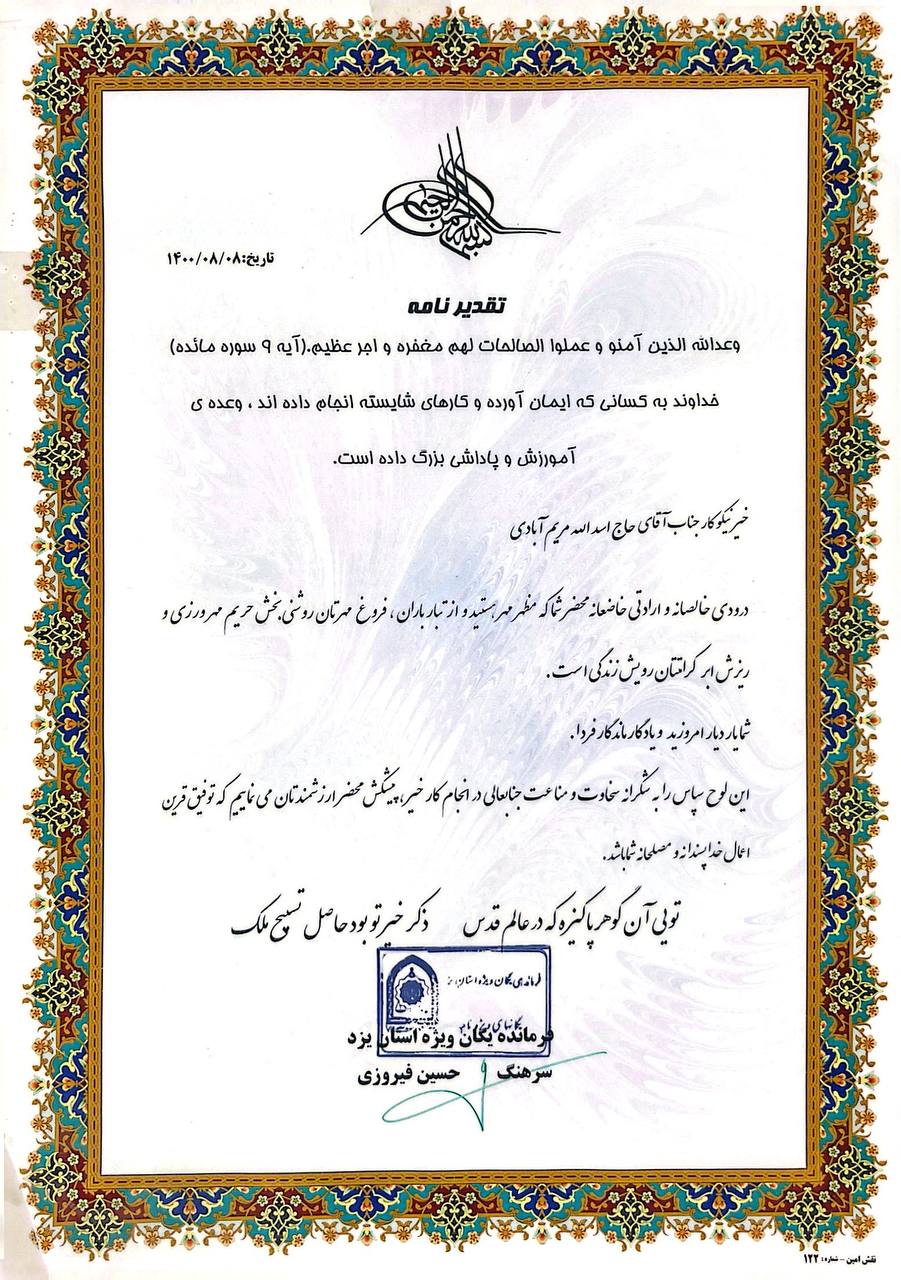 بسم الله الرحمن الرحیم
تاریخ:۱۴۰۰/۰۸/۰۸
تقدیر نامه
وعدالله الذین آمنو و عملوا الصالحات لهم مغفره و اجر عظیم.(آیه ۹ سوره مائده)
خداوند به کسانی که ایمان آورده و کارهای شایسته انجام داده اند ، وعده ی
آمورزش و پاداشی بزرگ داده است.
خیر نیکوکار جناب آقای حاج اسد الله مریم آبادی
درودی خالصانه و ارادتی خاضعانه محضر شما که مظهر مهر هستید و از تبار باران ، فروغ مهرتان روشنی بخش حریم مهرورزی و
ریزش ابر کرامتتان رویش زندگی است.
شما یار دیار امروزید و یادگار ماندگار فردا.
این لوح سپاس را به شکرانه سخاوت و مناعت جنابعالی در انجام کار خیر، پیشکش محضر ارزشمندتان می نماییم که توفیق قرین
اعمال خداپسندانه و مصلحانه شما باشد.
تویی آن گوهر پاکیزه که در عالم قدس ذکر خیر تو بود حاصل تسبیح ملک
فرماندهی یگان ویژه استان
فرمانده یگان ویژه استان یزد
سرهنگ حسین فیروزی
نقش امین - شماره: ۱۲۲